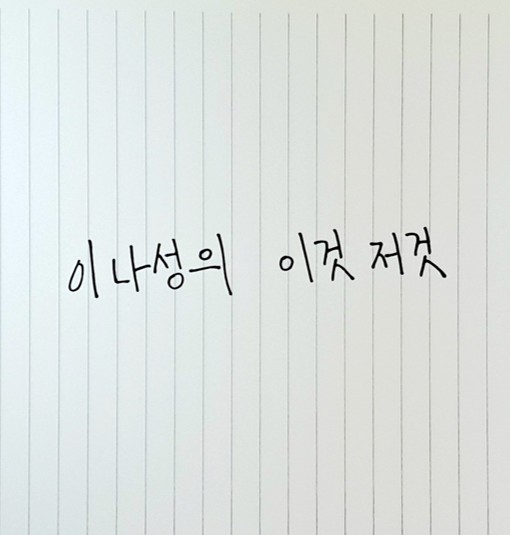 이나성의 이것 저것